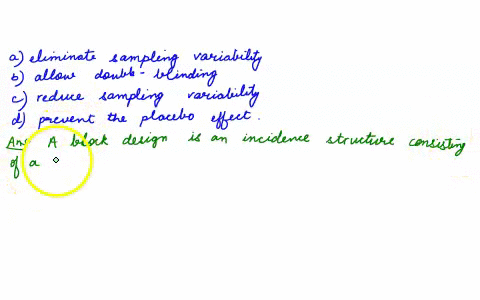 a) eliminate sampling variability
b) allow double-blinding
c) reduce sampling variability
d) prevent the placebo effect.
Ans A block design is an incidence structure consisting
of a